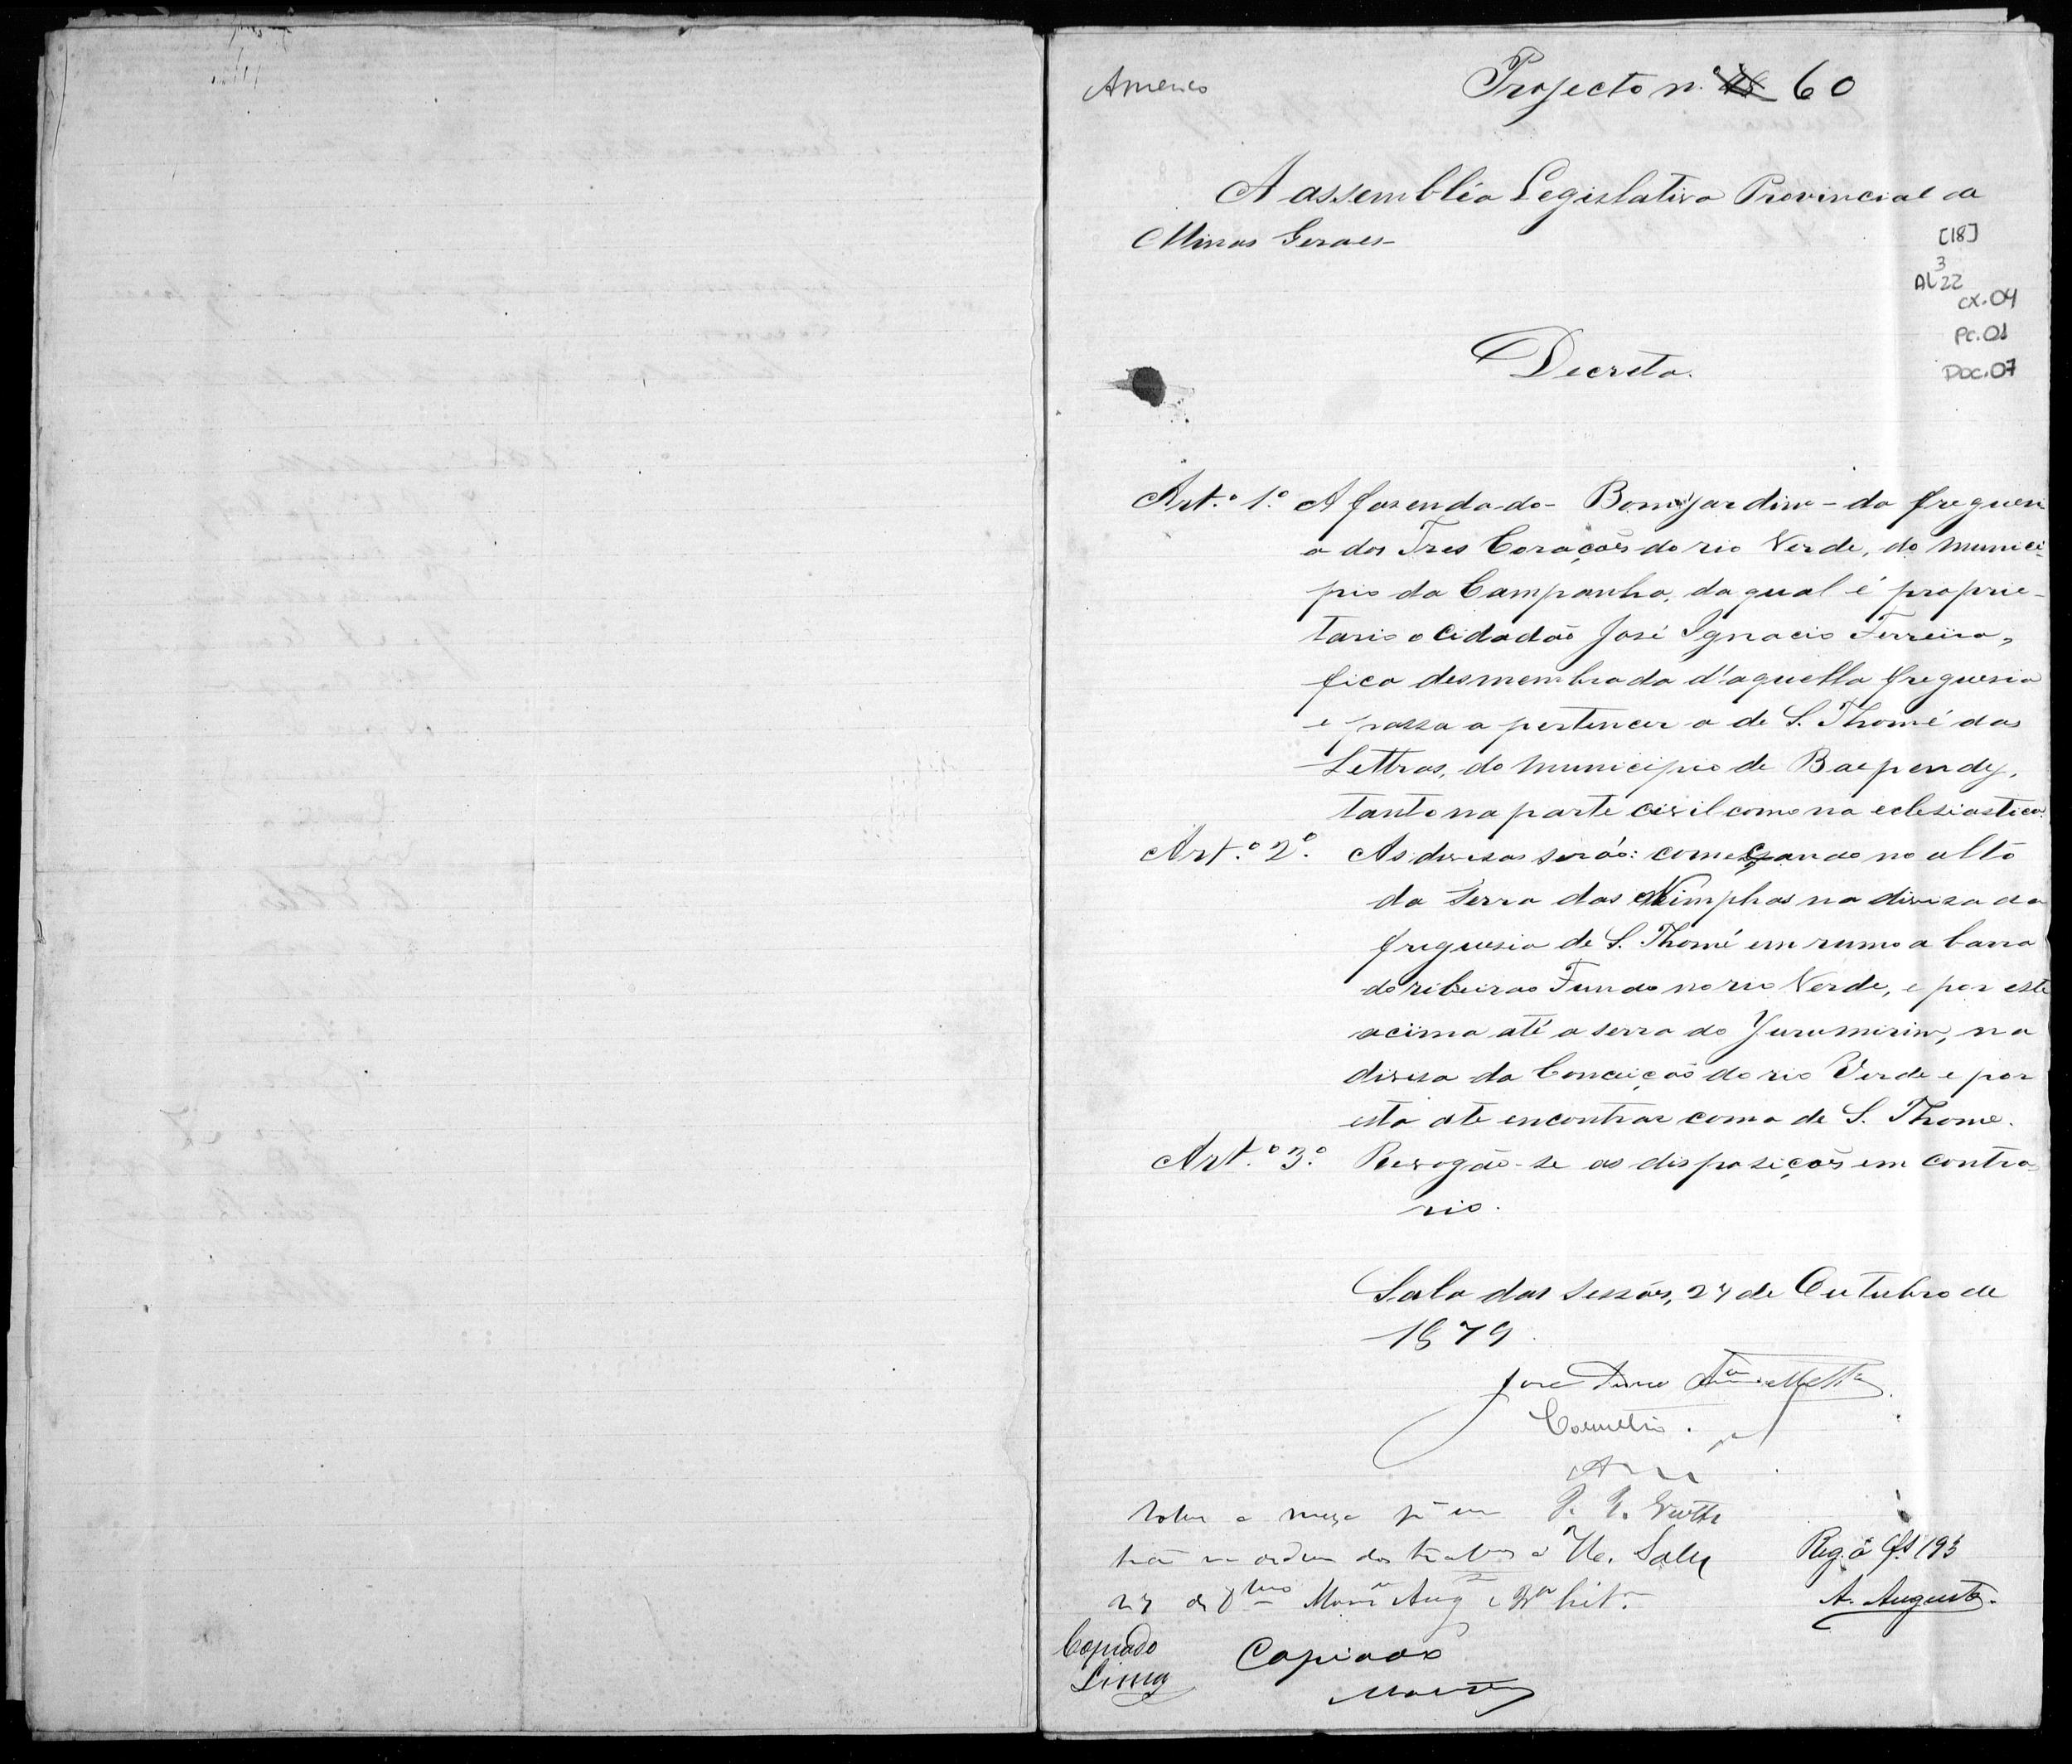 Americo
Projecto n. 60
A assembléa Legislativa Provincial de
Minas Geraes
[18]
AL 3 22
cx. 04
Pc. 01
Doc. 07
Decreta.
Art.º 1.º A fasenda do - Bom jardim - da freguesi
a dos Tres Corações do rio Verde, do munici-
pio da Campanha, da qual é proprie-
tario o Cidadão José Ignacio Ferreira,
fica desmembrada d'aquella freguesia
e passa a pertencer a de S. Thomé das
Lettras, do municipio de Baependy,
tanto na parte civil como na eclesiastica.
Art.º 2.º As divisas serão: começando no alto
da serra das Nimphas na divisa da
freguesia de S. Thomé em rumo a barra
do ribeirao Fundo no rio Verde, e por este
acima até a serra do Jurumirim, na
divisa da Conceição do rio Verde e por
esta até encontrar com a de S. Thome.
Art.º 3.º Revogão-se as disposições em contra-
rio.
Sala das sessões, 27 de Outubro de
1879.
Cornelio.
Reg. á fs 193
A. Augusto.
Copiado
Lima
Copiado